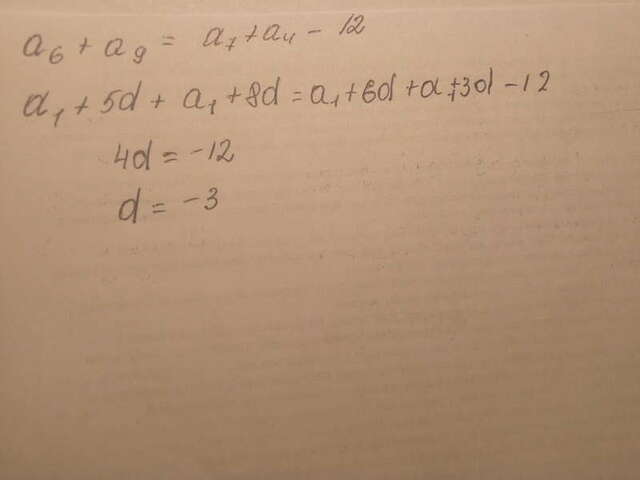 a₆ + a₉ = a₇ + a₄ - 12
a₁ + 5d + a₁ + 8d = a₁ + 6d + a₁ + 3d - 12
4d = -12
d = -3